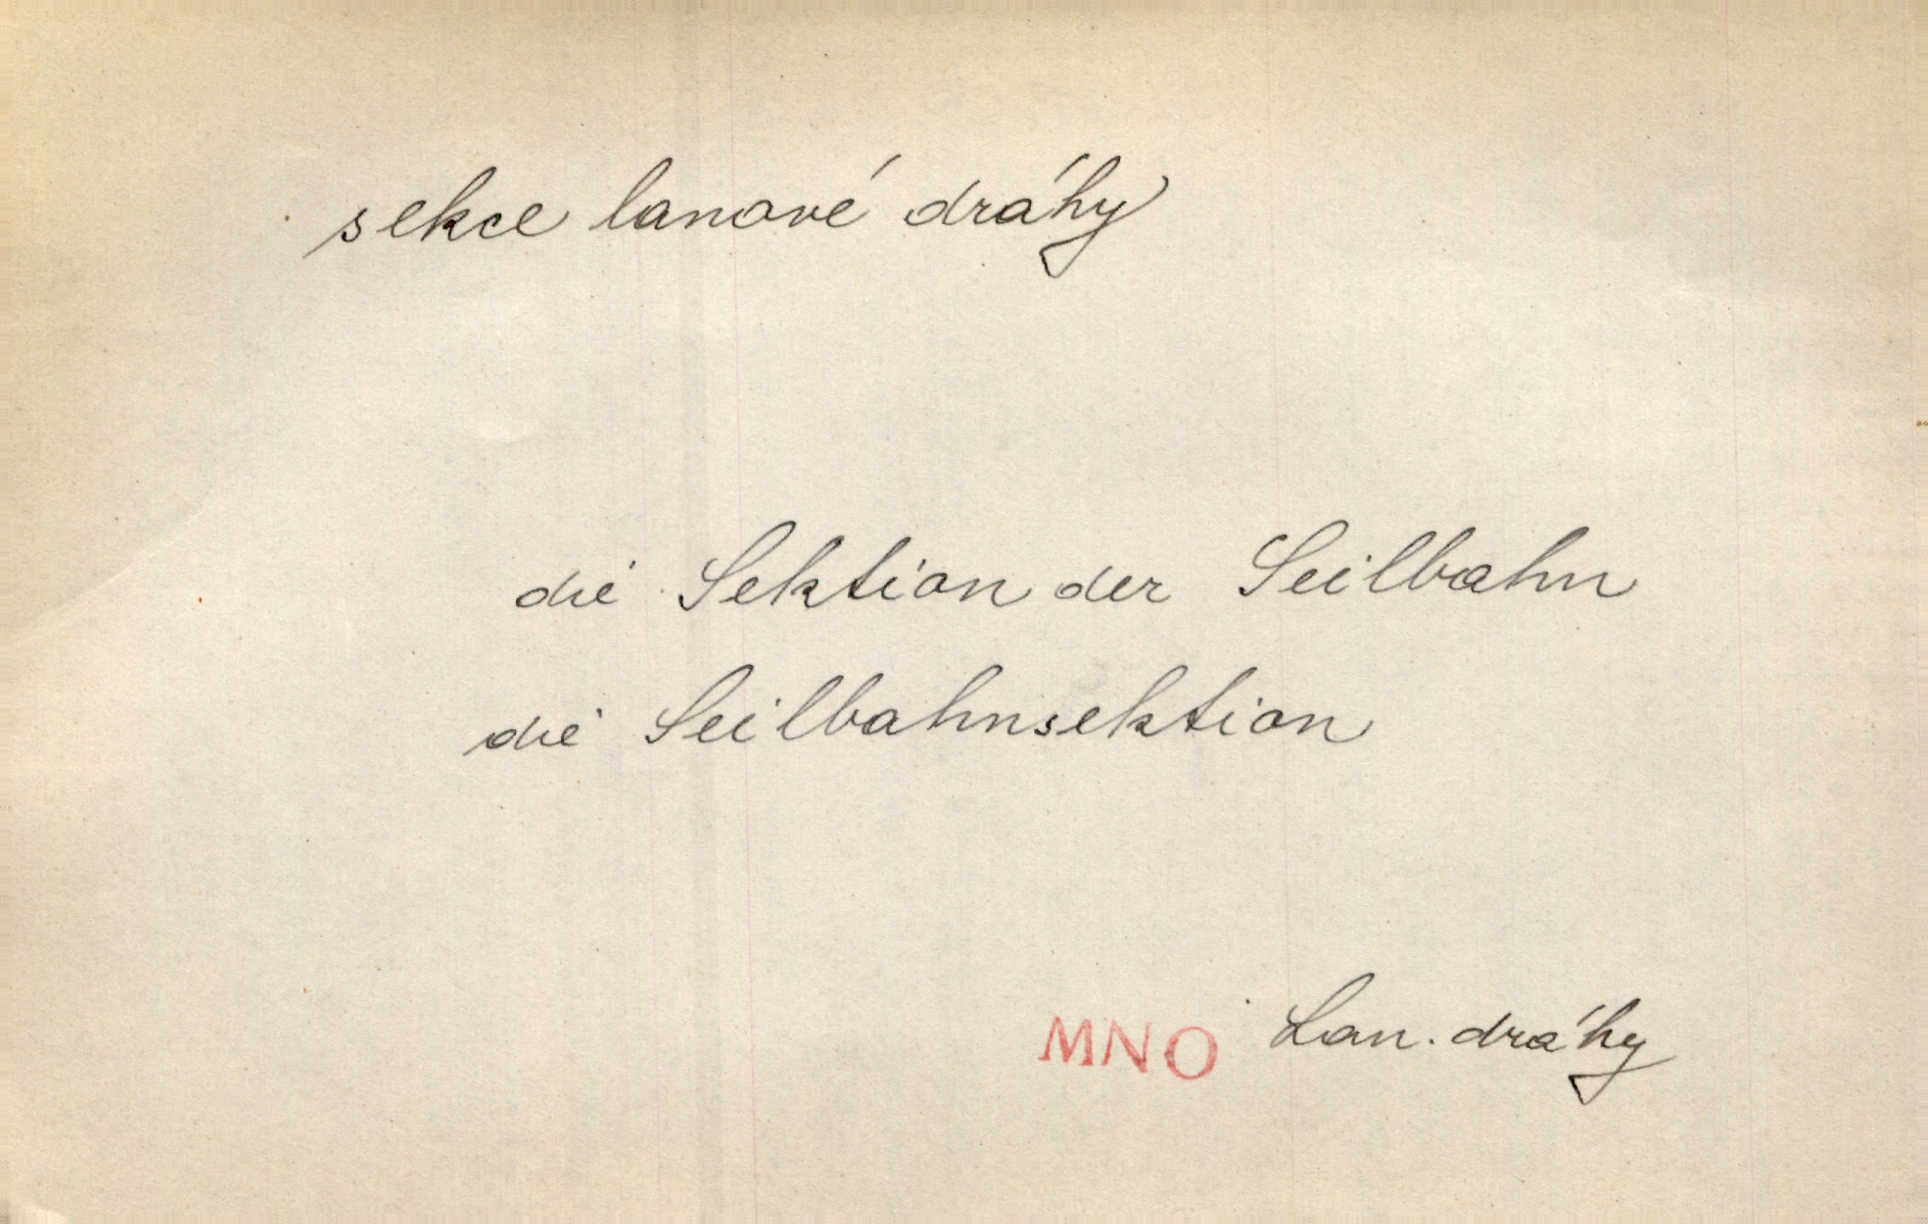 sekce lanové dráhy
die Sektion der Seilbahn
die Seilbahnsektion
MNO Lan. dráhy